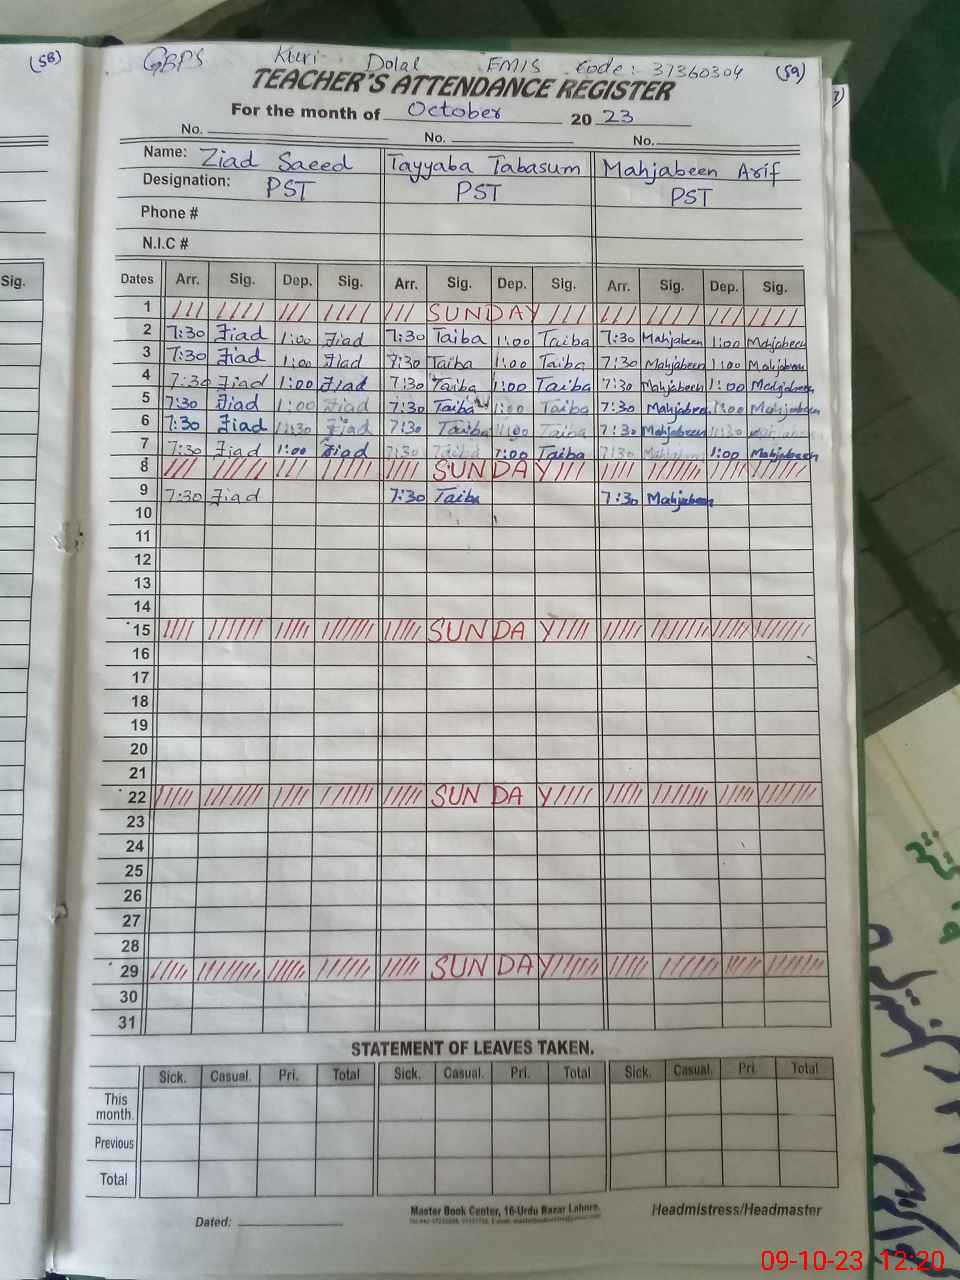 (58)
GBPS Kuri Dolal EMIS Code: 37360304 (59)
TEACHER'S ATTENDANCE REGISTER
For the month of October 20 23
No. No. No.
Name: Ziad Saeed Tayyaba Tabasum Mahjabeen Arif
Designation: PST PST PST
Phone #
N.I.C #
Sig. Dates Arr. Sig. Dep. Sig. Arr. Sig. Dep. Sig. Arr. Sig. Dep. Sig.
1 SUNDAY
2 7:30 Ziad 1:00 Ziad 7:30 Taiba 1:00 Taiba 7:30 Mahjabeen 1:00 Mahjabeen
3 7:30 Ziad 1:00 Ziad 7:30 Taiba 1:00 Taiba 7:30 Mahjabeen 1:00 Mahjabeen
4 7:30 Ziad 1:00 Ziad 7:30 Taiba 1:00 Taiba 7:30 Mahjabeen 1:00 Mahjabeen
5 7:30 Ziad 1:00 Ziad 7:30 Taiba 1:00 Taiba 7:30 Mahjabeen 1:00 Mahjabeen
6 7:30 Ziad Ziad 7:30 Taiba Taiba 7:30 Mahjabeen Mahjabeen
7 7:30 Ziad 1:00 Ziad 7:30 Taiba 1:00 Taiba 7:30 Mahjabeen 1:00 Mahjabeen
8 SUNDAY
9 7:30 Ziad 7:30 Taiba 7:30 Mahjabeen
10
11
12
13
14
15 SUNDAY
16
17
18
19
20
21
22 SUNDAY
23
24
25
26
27
28
29 SUNDAY
30
31
STATEMENT OF LEAVES TAKEN.
Sick. Casual. Pri. Total Sick. Casual. Pri. Total Sick. Casual. Pri. Total
This month.
Previous
Total
Dated: Master Book Center, 16-Urdu Bazar Lahore. Headmistress/Headmaster
09-10-23 12:20